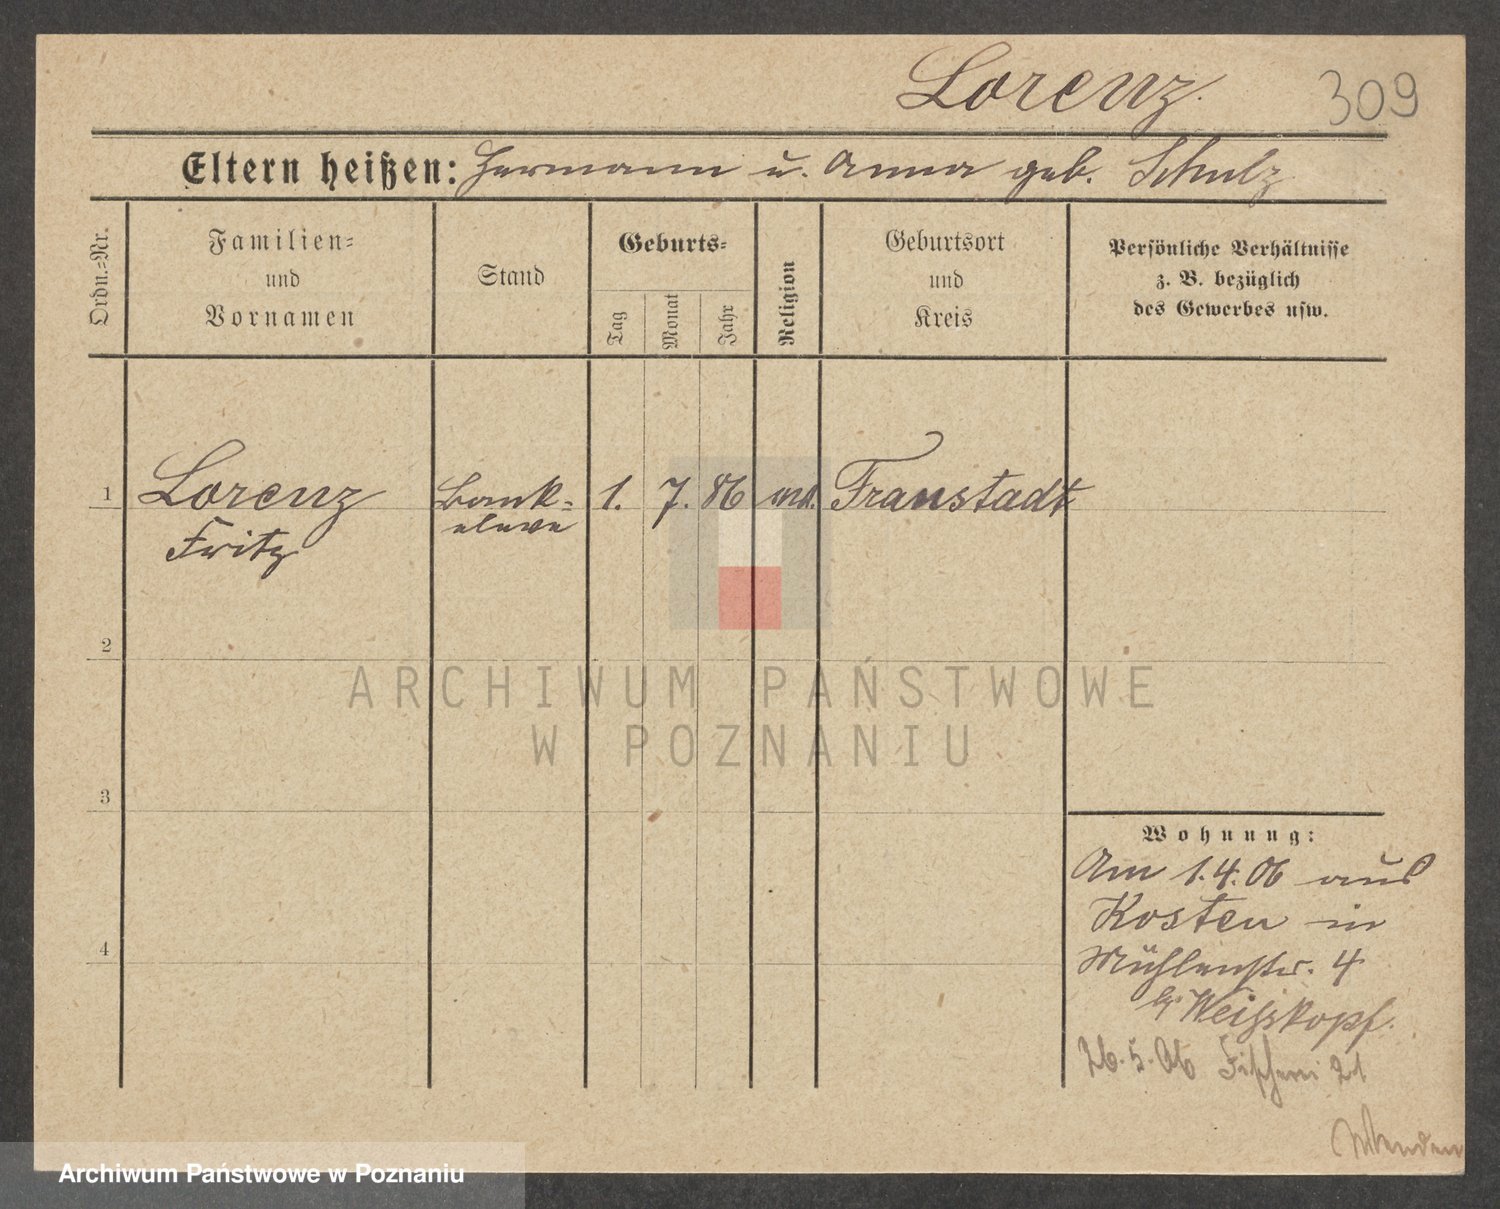 Lorenz.
309
Eltern heißen: Hermann u. Anna geb. Schulz
Ordn.=Nr.
Familien=
und
Vornamen
Stand
Geburts=
Tag
Monat
Jahr
Religion
Geburtsort
und
Kreis
Persönliche Verhältnisse
z. B. bezüglich
des Gewerbes usw.
1
Lorenz
Fritz
Bank=
eleve
1.
7.
86
Fraustadt
2
ARCHIWUM PAŃSTWOWE
W POZNANIU
3
Wohnung:
Am 1.4.06 aus
Kosten in
Mühlenstr. 4
4
b/ Weißkopf.
26.5.06 Fischerei 21
Archiwum Państwowe w Poznaniu